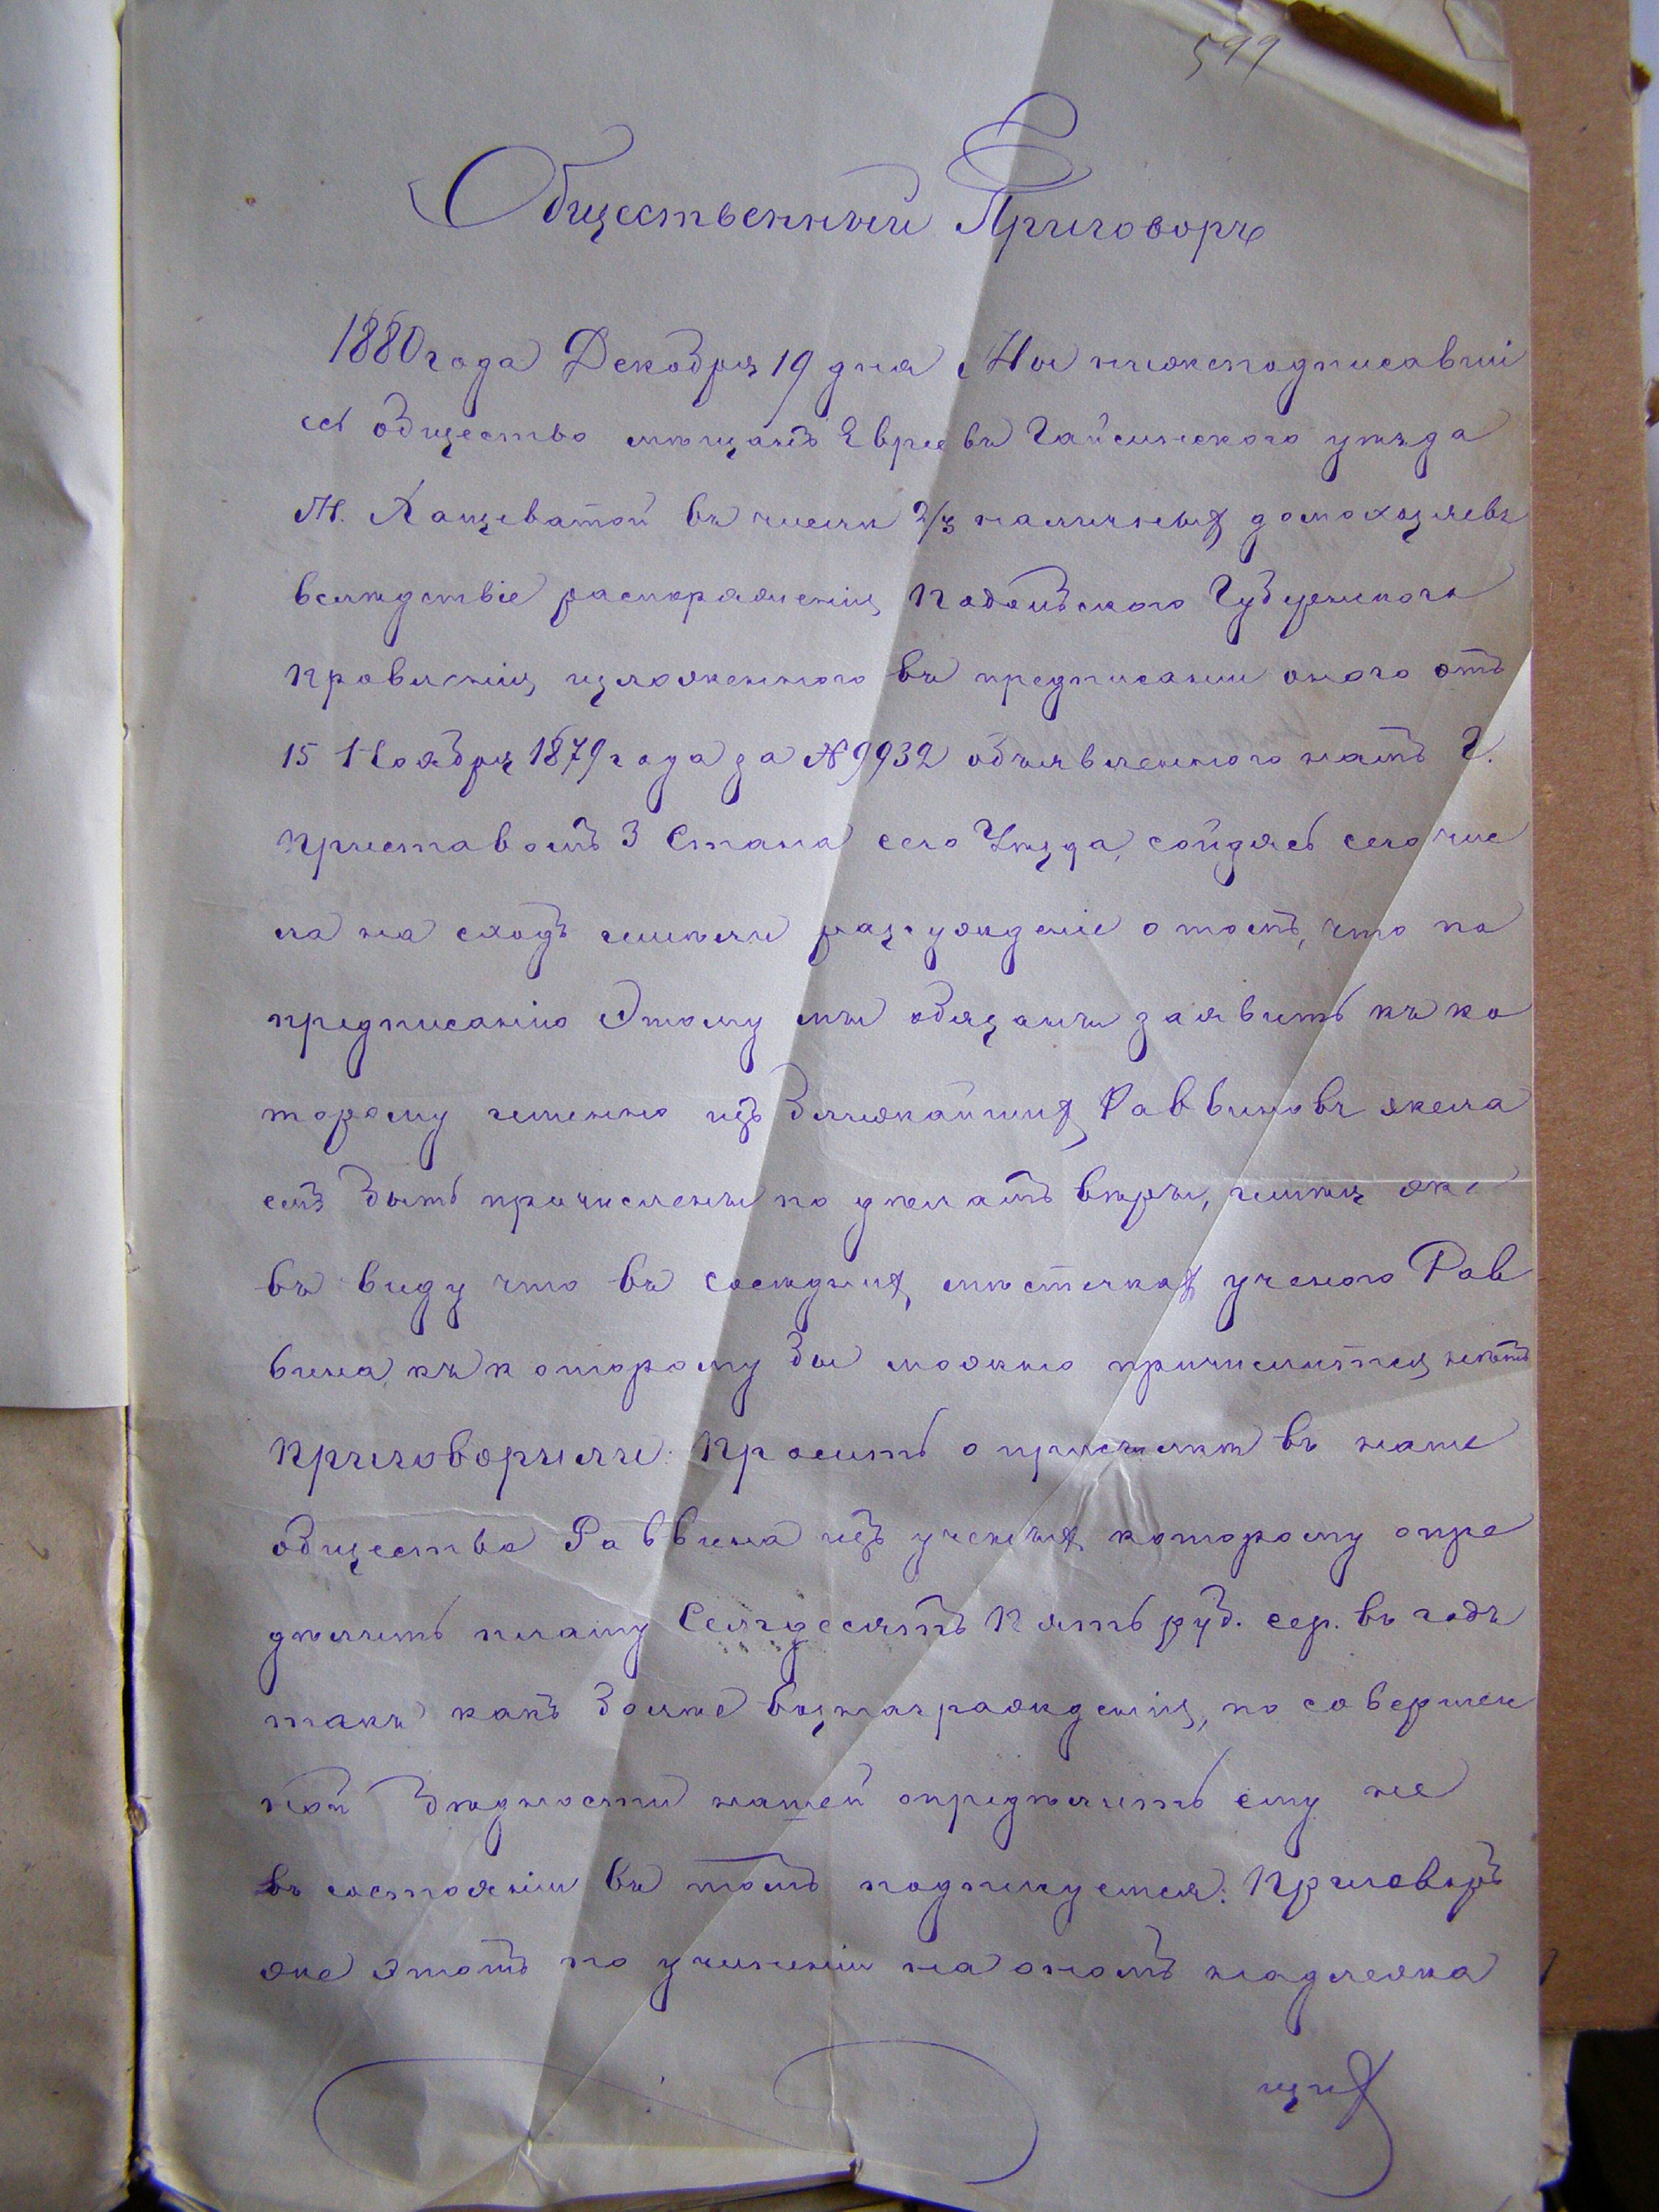 599
Общественный Приговоръ
1880 года Декабря 19 дня Мы нижеподписавші
еся общество мѣщанъ Евреевъ Гайсинского уѣзда
М. Хащеватой въ числѣ 2/3 наличныхъ домохозяевъ
вслѣдствіе распоряженія Подольского Губернского
Правленія, изложенного въ предписаніи оного отъ
15 Ноября 1879 года за № 9932 объявленного намъ Г.
Приставомъ 3 Стана сего Уѣзда, сойдясь сего чис
ла на сходъ имѣли разсужденіе о томъ, что по
предписанію Этому мы обязаны заявить къ ко
торому именно изъ Ближайшихъ Раввиновъ жела
емъ быть причислены по дѣламъ вѣры, имѣя же
въ виду что въ Сосѣднихъ мѣстечкахъ ученого Рав
вина, къ которому бы можно причислится, нѣтъ
Приговорили: Просить о присылкѣ въ наше
общество Раввина изъ ученыхъ которому опре
дѣлить плату Семдесятъ Пять руб. сер. въ годъ
такъ какъ Болѣе вознагражденія, по совершен
ной Бѣдности нашей опредѣлить ему не
въ состояніи въ томъ подпишуемся: Приговоръ
же этотъ по учиненіи на ономъ надлежа
щихъ